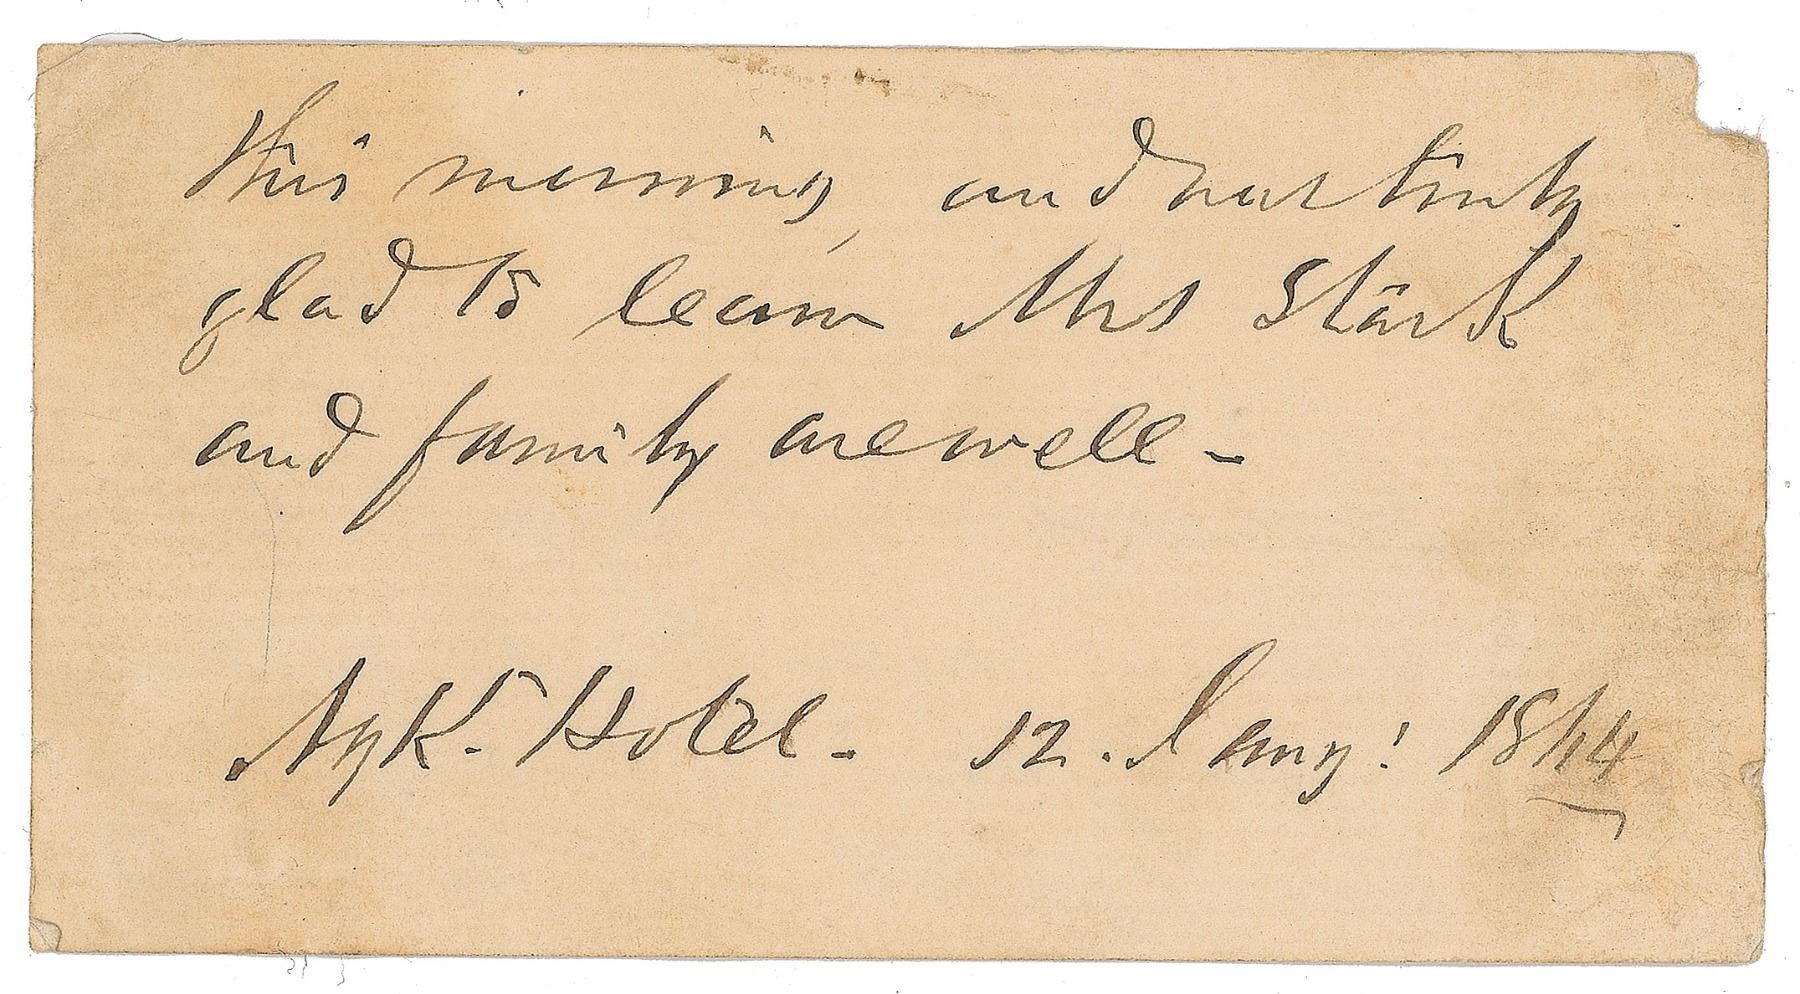 this morning, and
glad to learn Mrs Stark
and family are well -
N.Y.K. Hotel - 12. Jany: 1844